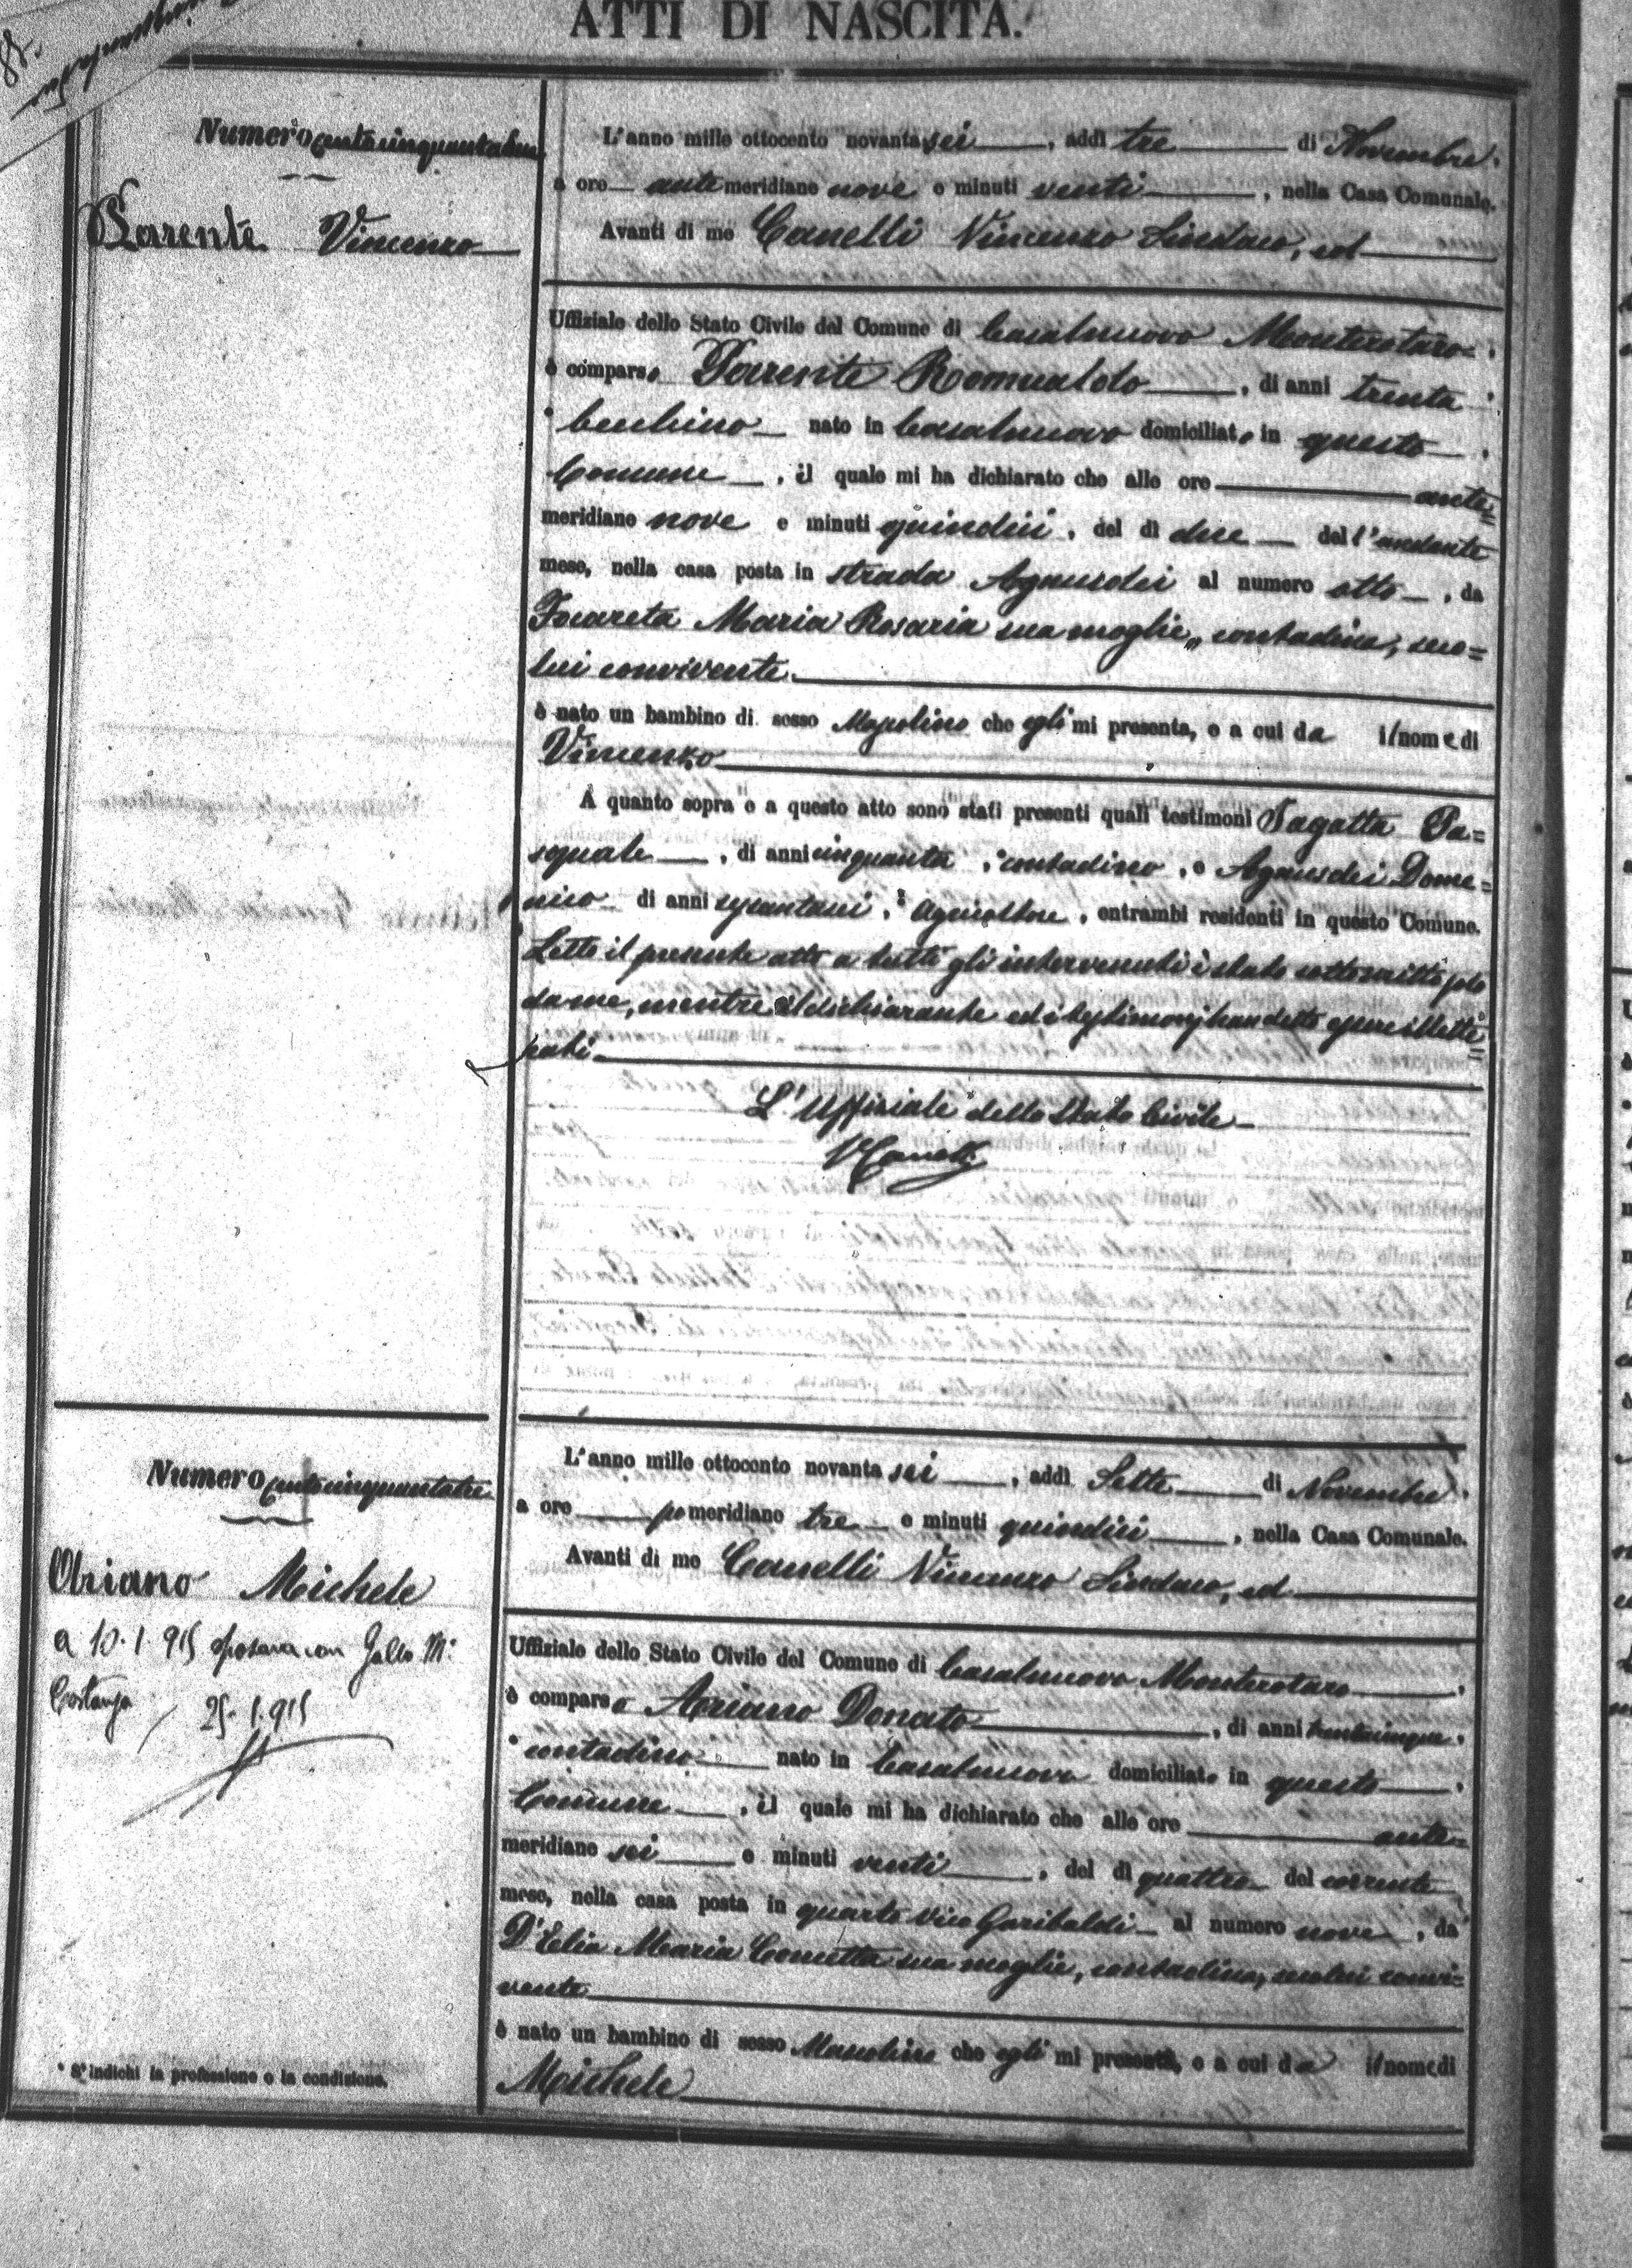 ATTI DI NASCITA.
Numero centocinquantadue
Parente Vincenzo
L'anno mille ottocento novantasei, addì tre di Novembre,
a ore antimeridiane nove e minuti venti, nella Casa Comunale.
Avanti di me Canelli Vincenzo Sindaco, ed
Uffiziale dello Stato Civile del Comune di Casalnuovo Monterotaro,
è comparso Parente Romualdo, di anni trenta,
nato in Casalnuovo domiciliato in questo
Comune, il quale mi ha dichiarato che alle ore ante=
meridiane nove e minuti quindici, del dì due dell'andante
mese, nella casa posta in strada Agnusdei al numero otto, da
Maria Rosaria sua moglie, contadina, seco=
lui convivente.
è nato un bambino di sesso Mascolino che egli mi presenta, e a cui da il nome di
Vincenzo
A quanto sopra e a questo atto sono stati presenti quali testimoni Sagatta Pa=
squale, di anni cinquanta, contadino, e Agnusdei Dome=
nico di anni sessantasei, agricoltore, entrambi residenti in questo Comune.
Letto il presente atto a tutti gli intervenuti è stato sottoscritto solo
da me, mentre il dichiarante ed i testimonj han detto essere illette=
rati.
L'Uffiziale dello Stato Civile
VCanelli
Numero centocinquantatre
Ariano Michele
a 10.1.915 sposava con Gallo M.
Costanza
25.1.915
L'anno mille ottocento novantasei, addì Sette di Novembre,
a ore pomeridiane tre e minuti quindici, nella Casa Comunale.
Avanti di me Canelli Vincenzo Sindaco, ed
Uffiziale dello Stato Civile del Comune di Casalnuovo Monterotaro,
è comparso Ariano Donato, di anni trentacinque,
* contadino nato in Casalnuovo domiciliato in questo
Comune, il quale mi ha dichiarato che alle ore ante=
meridiane sei e minuti venti, del dì quattro del corrente
mese, nella casa posta in quarto vico Garibaldi al numero nove, da
D'Elia Maria Concetta sua moglie, contadina, secolui convi=
vente
è nato un bambino di sesso Mascolino che egli mi presenta, e a cui da il nome di
Michele
* S'indichi la professione o la condizione.